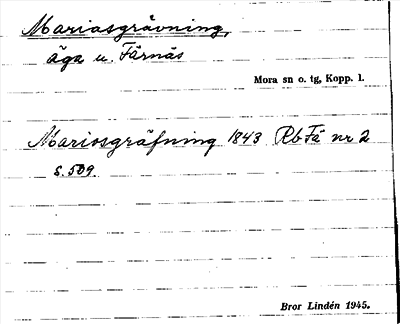 Mariasgrävning,
äga u. Färnäs
Mora sn o. tg, Kopp. l.
Mariosgräfning 1843 RbFä nr 2
s. 509.
Bror Lindén 1945.